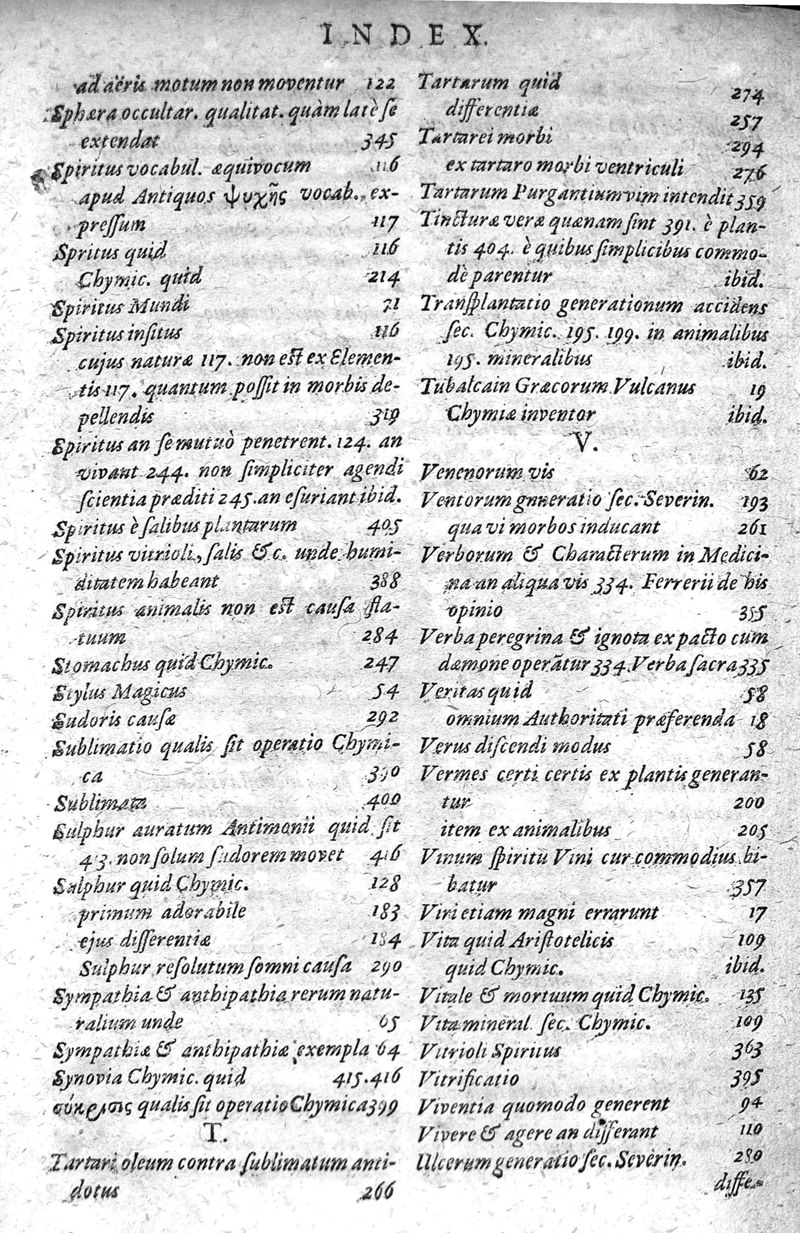 INDEX.
ad aëris motum non moventur 122
Sphæra occultar. qualitat. quàm latè se
extendat 345
Spiritus vocabul. æquivocum 116
apud Antiquos ψυχῆς vocab. ex-
pressum 117
Spritus quid 116
Chymic. quid 214
Spiritus Mundi 71
Spiritus insitus 116
cujus naturæ 117. non est ex Elemen-
tis 117. quantum possit in morbis de-
pellendis 319
Spiritus an se mutuò penetrent. 124. an
vivant 244. non simpliciter agendi
scientia præditi 245. an esuriant ibid.
Spiritus è salibus plantarum 405
Spiritus vitrioli, salis &c. unde humi-
ditatem habeant 388
Spiritus animalis non est causa fla-
tuum 284
Stomachus quid Chymic. 247
Stylus Magicus 54
Sudoris causæ 292
Sublimatio qualis sit operatio Chymi-
ca 390
Sublimata 400
Sulphur auratum Antimonii quid sit
413. non solum sudorem movet 416
Sulphur quid Chymic. 128
primum adorabile 183
ejus differentiæ 184
Sulphur resolutum somni causa 290
Sympathia & anthipathia rerum natu-
ralium unde 65
Sympathiæ & anthipathiæ exempla 64
Synovia Chymic. quid 415.416
σύκρισις qualis sit operatio Chymica 399
T.
Tartari oleum contra sublimatum anti-
dotus 266
Tartarum quid 274
differentiæ 257
Tartarei morbi 294
ex tartaro morbi ventriculi 276
Tartarum Purgantium vim intendit 359
Tincturæ veræ quænam sint 391. è plan-
tis 404. è quibus simplicibus commo-
dè parentur ibid.
Transplantatio generationum accidens
sec. Chymic. 195. 199. in animalibus
195. mineralibus ibid.
Tubalcain Græcorum Vulcanus 19
Chymiæ inventor ibid.
V.
Venenorum vis 62
Ventorum gnneratio sec. Severin. 193
qua vi morbos inducant 261
Verborum & Characterum in Medici-
na an aliqua vis 334. Ferrerii de his
opinio 355
Verba peregrina & ignota ex pacto cum
dæmone operãtur 334. Verba sacra 335
Veritas quid 58
omnium Authoritati præferenda 18
Verus discendi modus 58
Vermes certi certis ex plantis generan-
tur 200
item ex animalibus 205
Vinum spiritu Vini cur commodius bi-
batur 357
Viri etiam magni errarunt 17
Vita quid Aristotelicis 109
quid Chymic. ibid.
Vitale & mortuum quid Chymic. 135
Vita mineral. sec. Chymic. 109
Vitrioli Spiritus 363
Vitrificatio 395
Viventia quomodo generent 94
Vivere & agere an differant 110
Ulcerum generatio sec. Severin. 280
diffe-